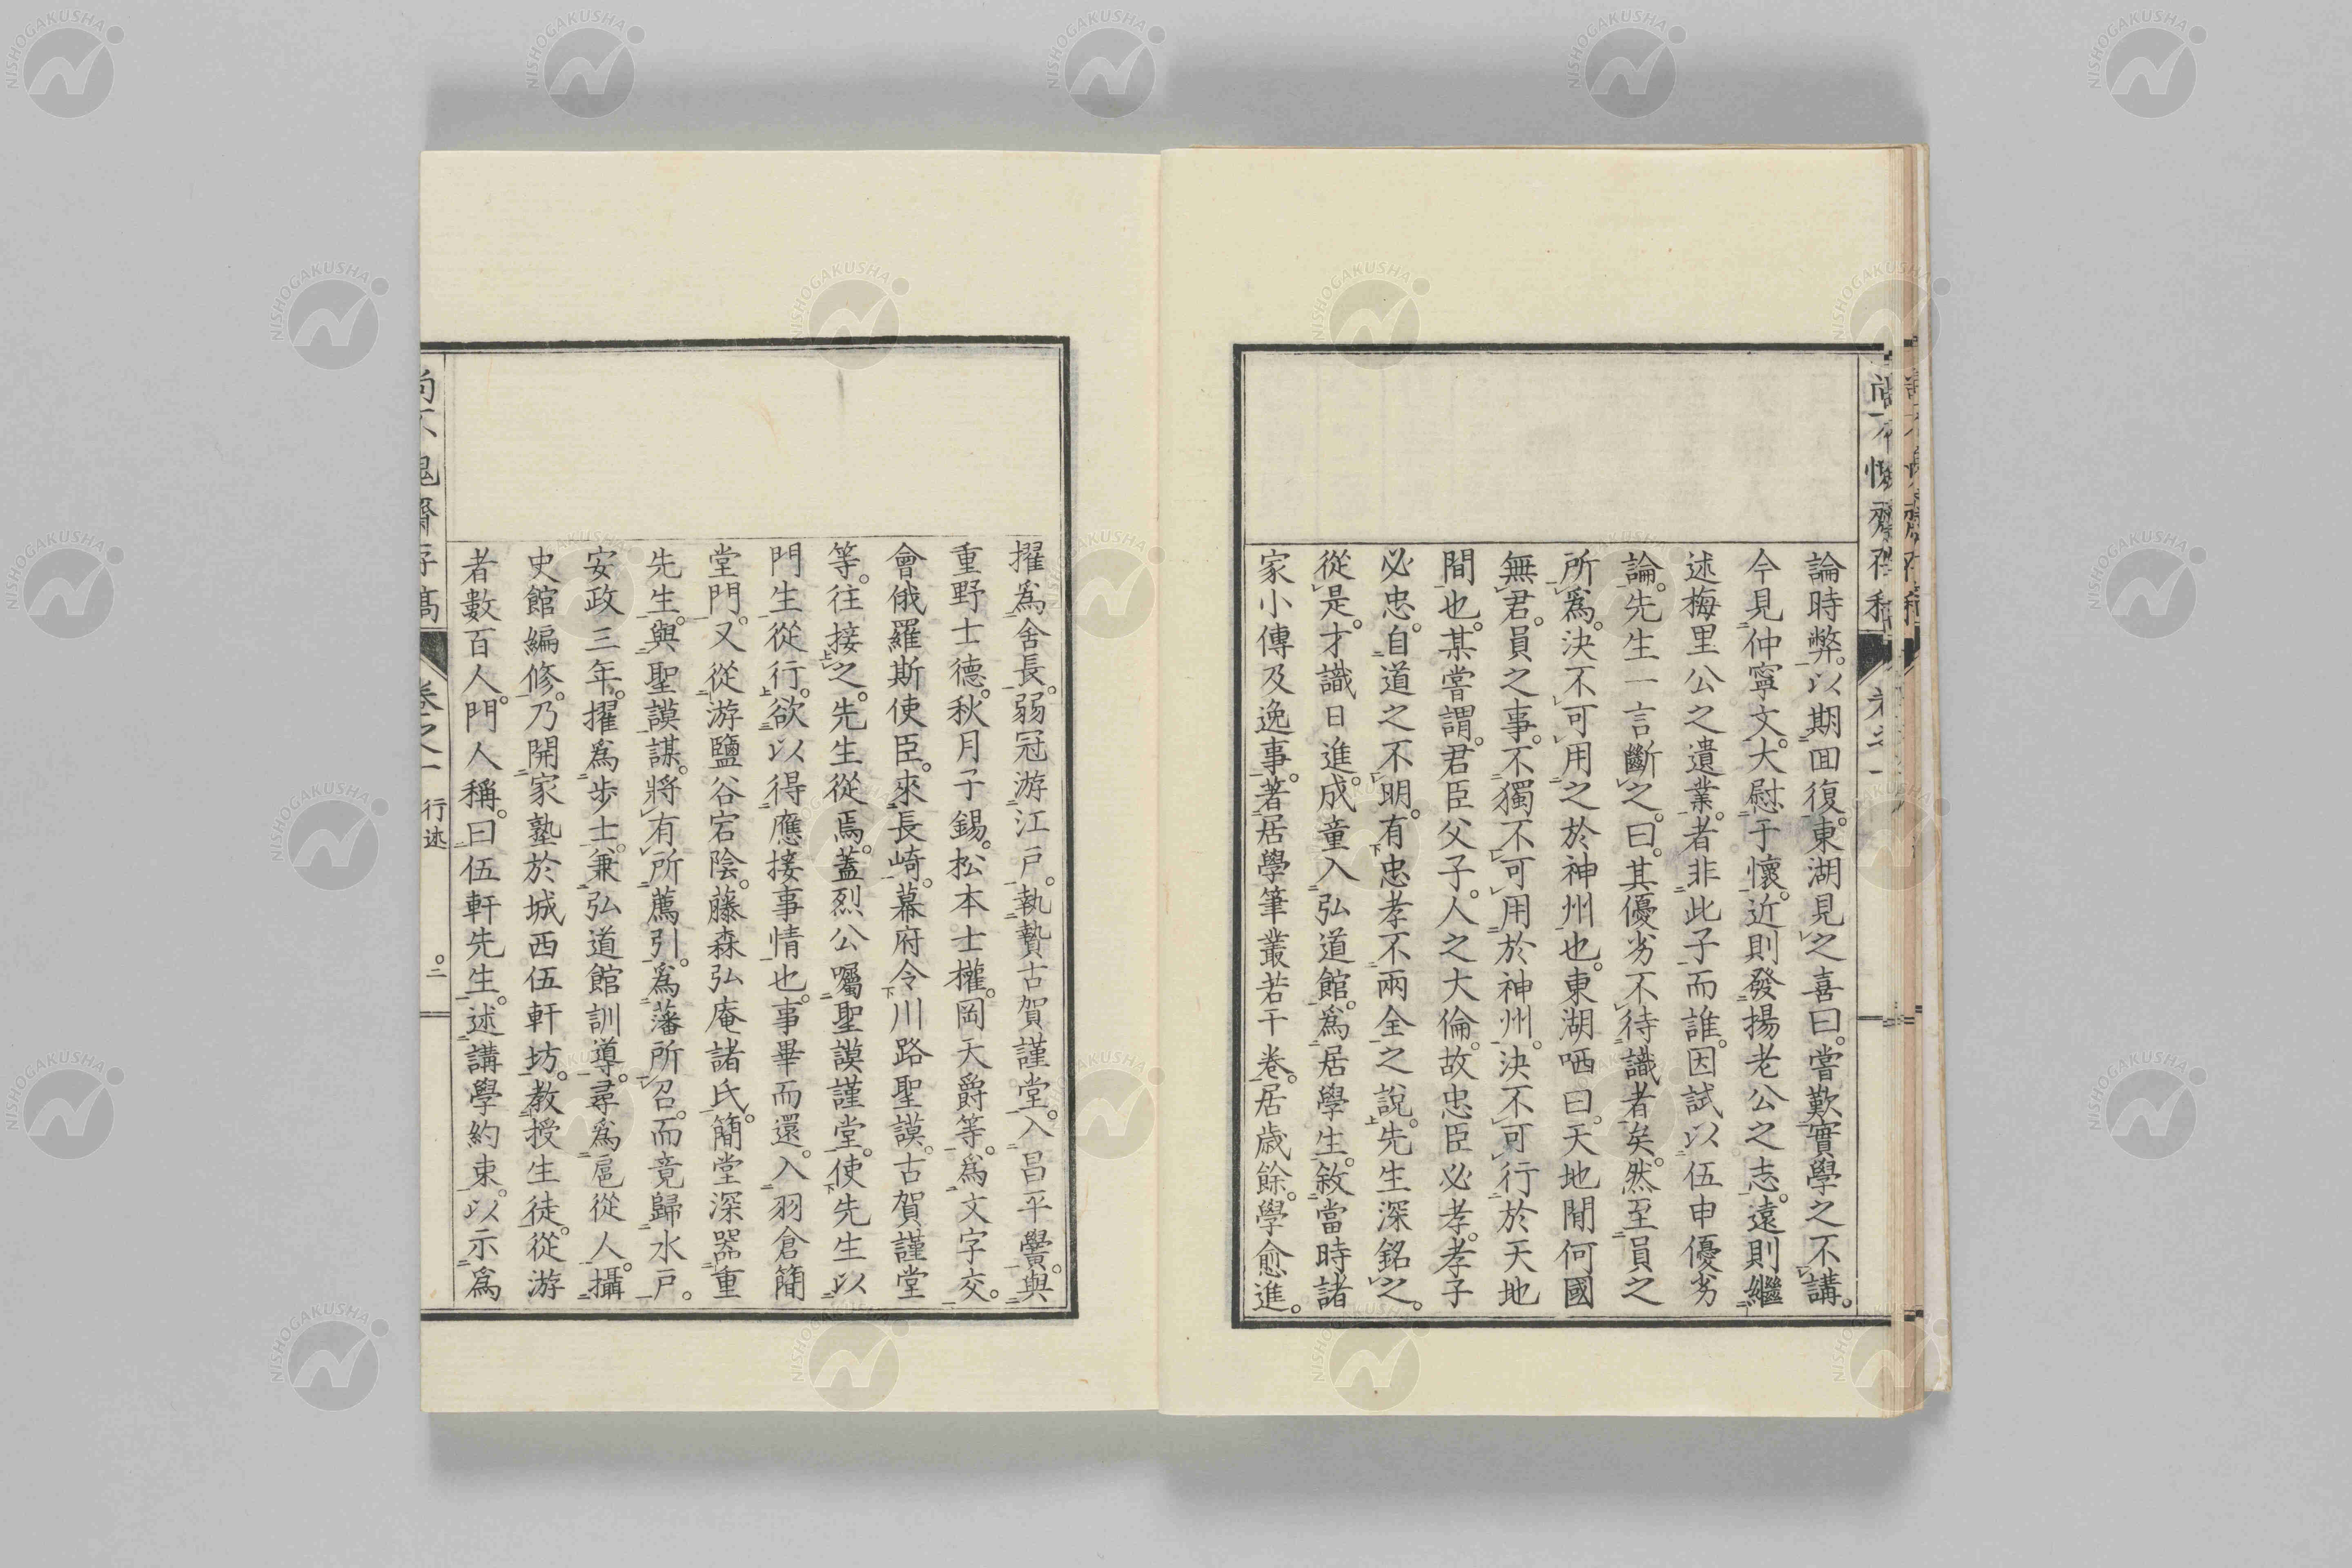 論時弊。以期囬復。東湖見之喜曰。嘗歎實學之不講。
今見仲寧文。大慰于懷。近則發揚老公之志。遠則繼
述梅里公之遺業。者非此子而誰。因試以伍申優劣
論。先生一言斷之。曰。其優劣不待識者矣。然至員之
所爲。決不可用之於神州也。東湖哂曰。天地間何國
無君。員之事。不獨不可用於神州。決不可行於天地
間也。某嘗謂。君臣父子。人之大倫。故忠臣必孝。孝子
必忠。自道之不明。有忠孝不兩全之說。先生深銘之。
從是才識日進。成童入弘道館。爲居學生。敘當時諸
家小傳及逸事。著居學筆叢若干卷。居歳餘。學愈進。
擢爲舍長。弱冠游江戸。執贄古賀謹堂。入昌平黌。與
重野士德。秋月子錫。松本士權。岡天爵等。爲文字交。
會俄羅斯使臣。來長崎。幕府令川路聖謨。古賀謹堂
等。往接之。先生從焉。蓋烈公囑聖謨謹堂。使先生以
門生從行。欲以得應接事情也。事畢而還。入羽倉簡
堂門。又從游鹽谷宕陰。藤森弘庵諸氏。簡堂深器重
先生。與聖謨謀。將有所薦引。爲藩所召。而竟歸水戸。
安政三年。擢爲歩士。兼弘道館訓導。尋爲扈從人。攝
史館編修。乃開家塾於城西伍軒坊。教授生徒。從游
者數百人。門人稱。曰伍軒先生。述講學約束。以示爲
尚不愧齋存稿
卷之一
行述
二
NISHOGAKUSHA